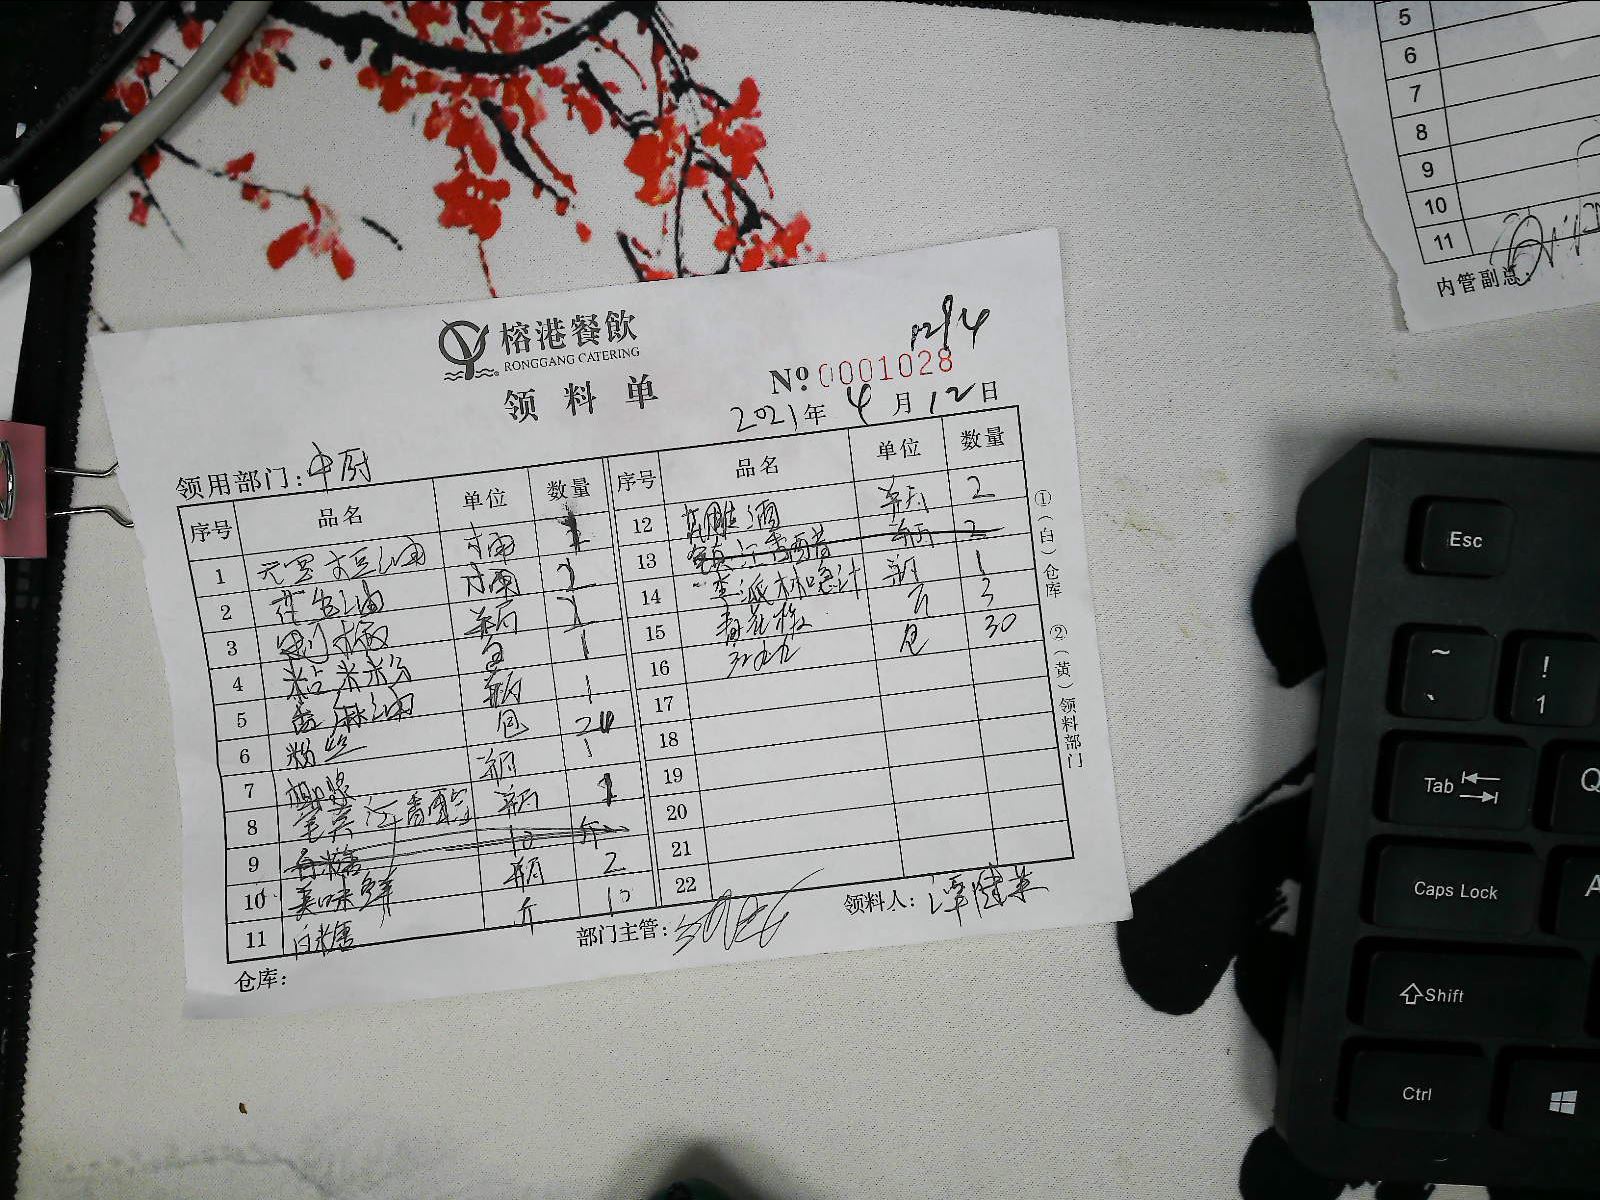 榕港餐飲
RONGGANG CATERING
领料单
12/4
№ 0001028
2021年 4 月 12 日
领用部门: 中厨
序号 品名 单位 数量 序号 品名 单位 数量
1 大豆油 桶
2 花生油 桶 2
3 瓶 2
4 粘米粉 包 1
5 芝麻油 瓶 1
6 粉丝 包 20
7 椰浆 瓶 1
8 香醋 瓶 1
9 白糖 10 斤
10 美味鲜 瓶 2
11 白糖 斤 10
12 花雕酒 瓶 2
13 江香醋 瓶 2
14 李派林喼汁 瓶 1
15 青花椒 斤 3
16 包 30
17
18
19
20
21
22
仓库:
部门主管:
领料人: 谭健英
①(白)仓库 ②(黄)领料部门
5
6
7
8
9
10
11
内管副总:
Esc
~
`
!
1
Tab
Q
Caps Lock
A
Shift
Ctrl